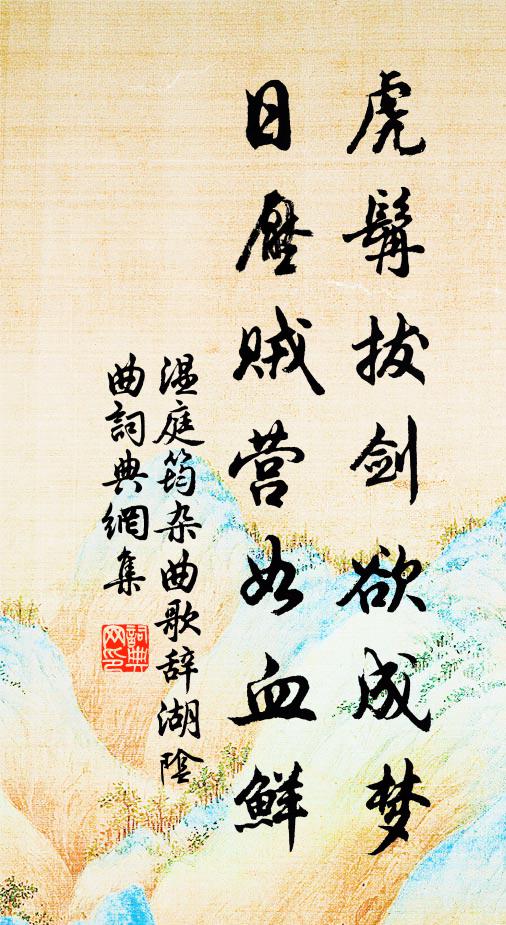 虎髯拔剑欲成梦
日压贼营如血鲜
温庭筠杂曲歌辞湖阴
曲詞典網集
詞典
网印